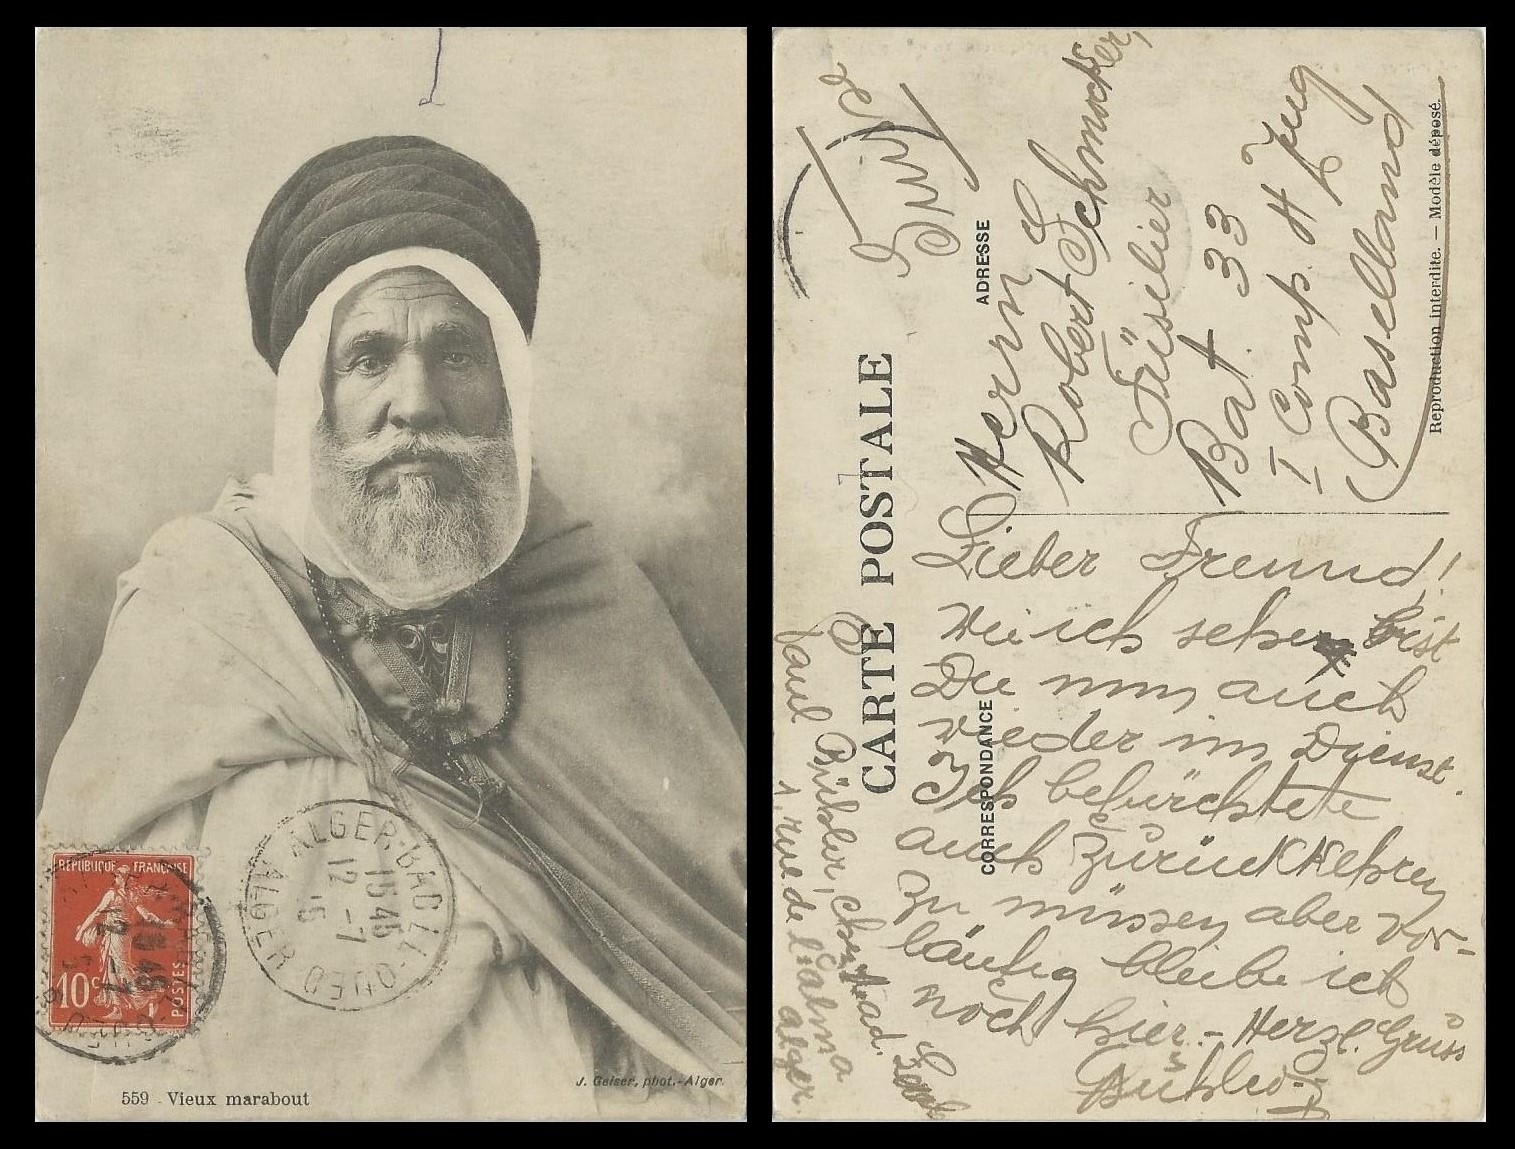 RÉPUBLIQUE FRANÇAISE
10c POSTES
ALGER-BAB-EL-OUED
1545
12-7
15
ALGER
J. Geiser, phot.-Alger.
559 - Vieux marabout
CARTE POSTALE
CORRESPONDANCE
ADRESSE
Reproduction interdite. — Modèle déposé.
Herrn
Robert Schmocker,
Füsilier
Bat. 33
I Comp. 4 Zug
Baselland
Lieber Freund!
Wie ich sehe, bist
Du nun auch
wieder im Dienst.
Ich befürchtete
auch zurückkehren
zu müssen aber vor-
läufig bleibe ich
noch hier. - Herzl. Gruss
Bühler
Paul Bühler, chez
1, rue de l'Isly
Alger.